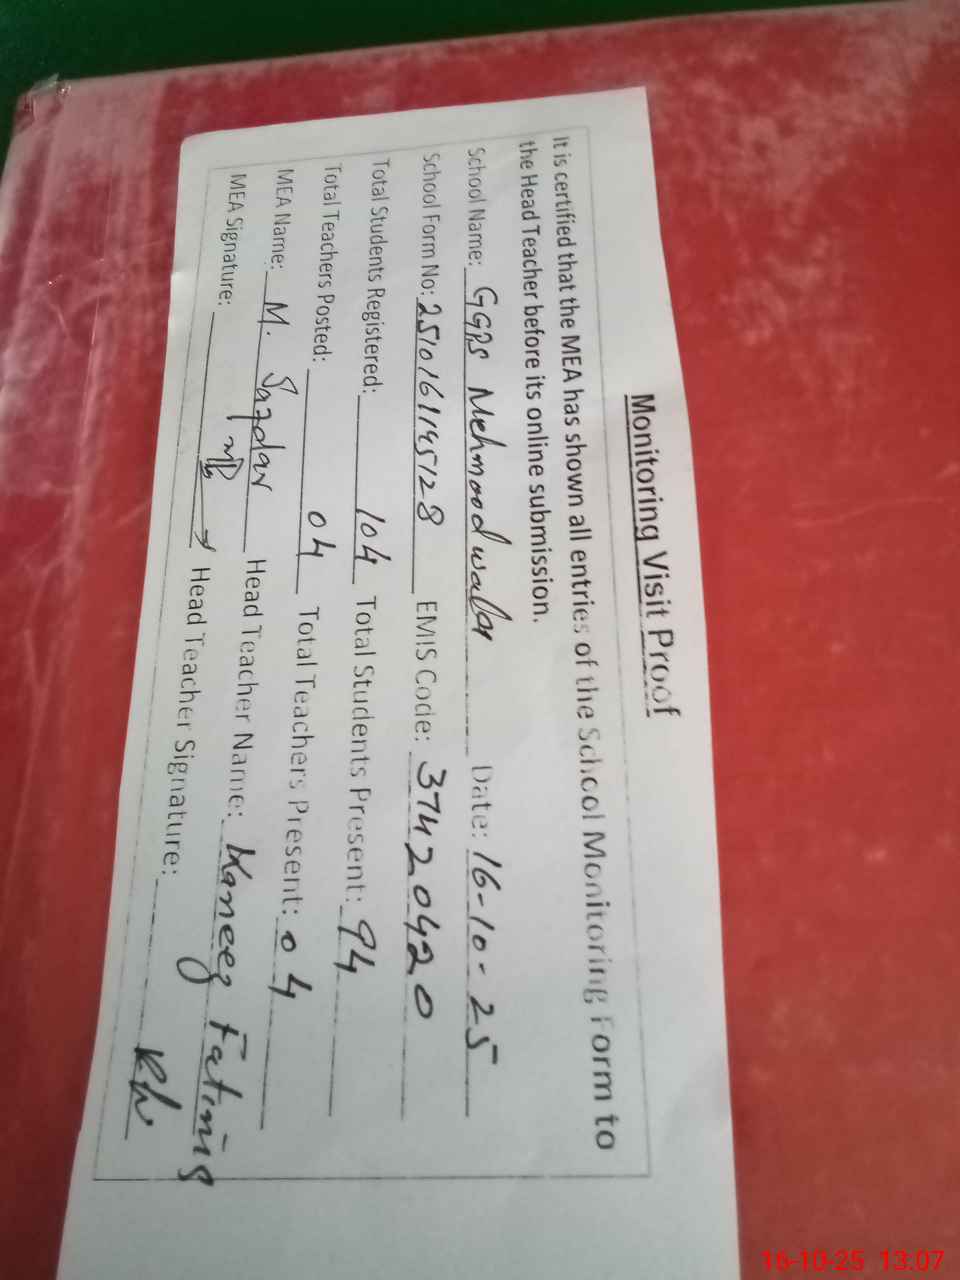 Monitoring Visit Proof
It is certified that the MEA has shown all entries of the School Monitoring Form to
the Head Teacher before its online submission.
School Name: GGPS Mehmood wala Date: 16-10-25
School Form No: 2510161145128 EMIS Code: 37420420
Total Students Registered: 104 Total Students Present: 94
Total Teachers Posted: 04 Total Teachers Present: 04
MEA Name: M. Safdar Head Teacher Name: Kaneez Fatima
MEA Signature: Head Teacher Signature:
16-10-25 13:07